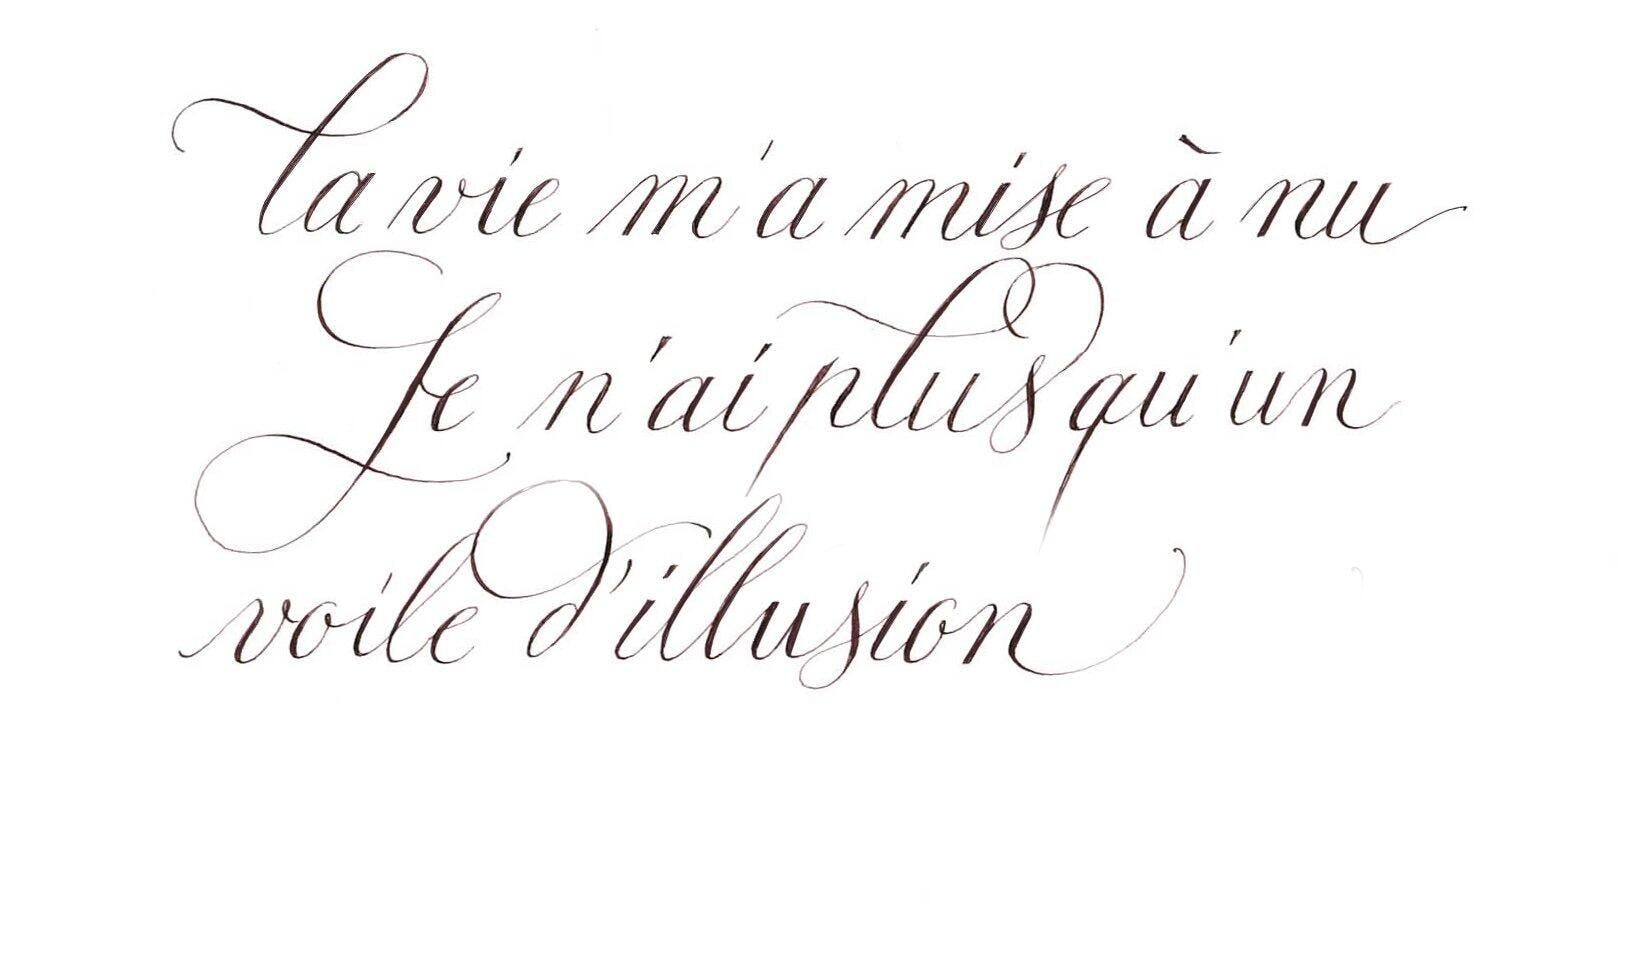 la vie m'a mise à nu
Je n'ai plus qu'un
voile d'illusion